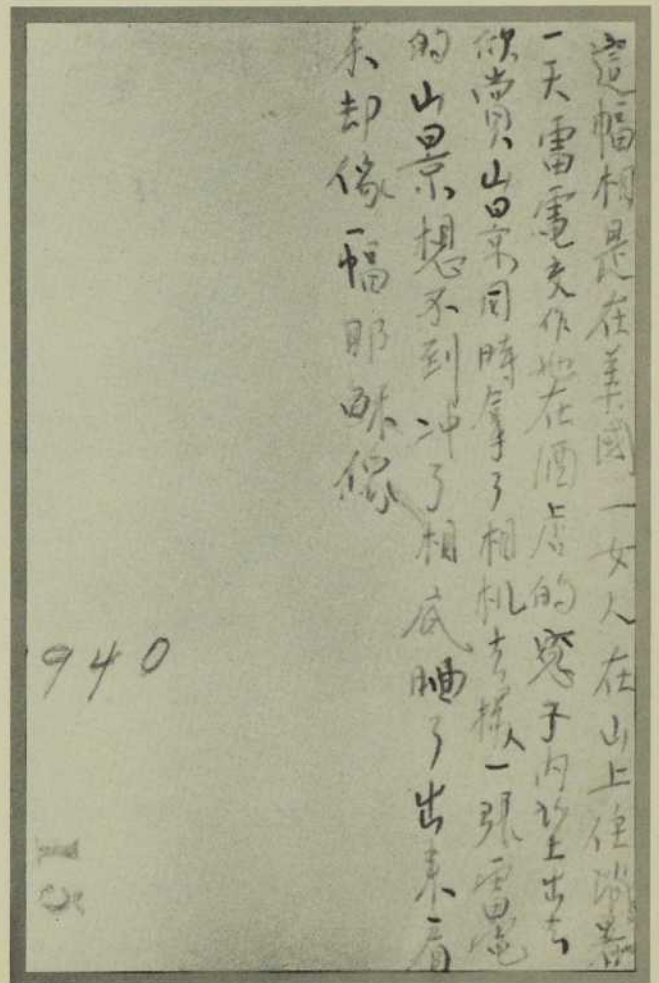 這幅相是在美國一女人在山上住
一天雷電交作她在酒店的窓子內 出去
欣賞山景同時拿了相机去 一張雷電
的山景想不到冲了相底晒了出來一看
來却像一幅耶穌像
940